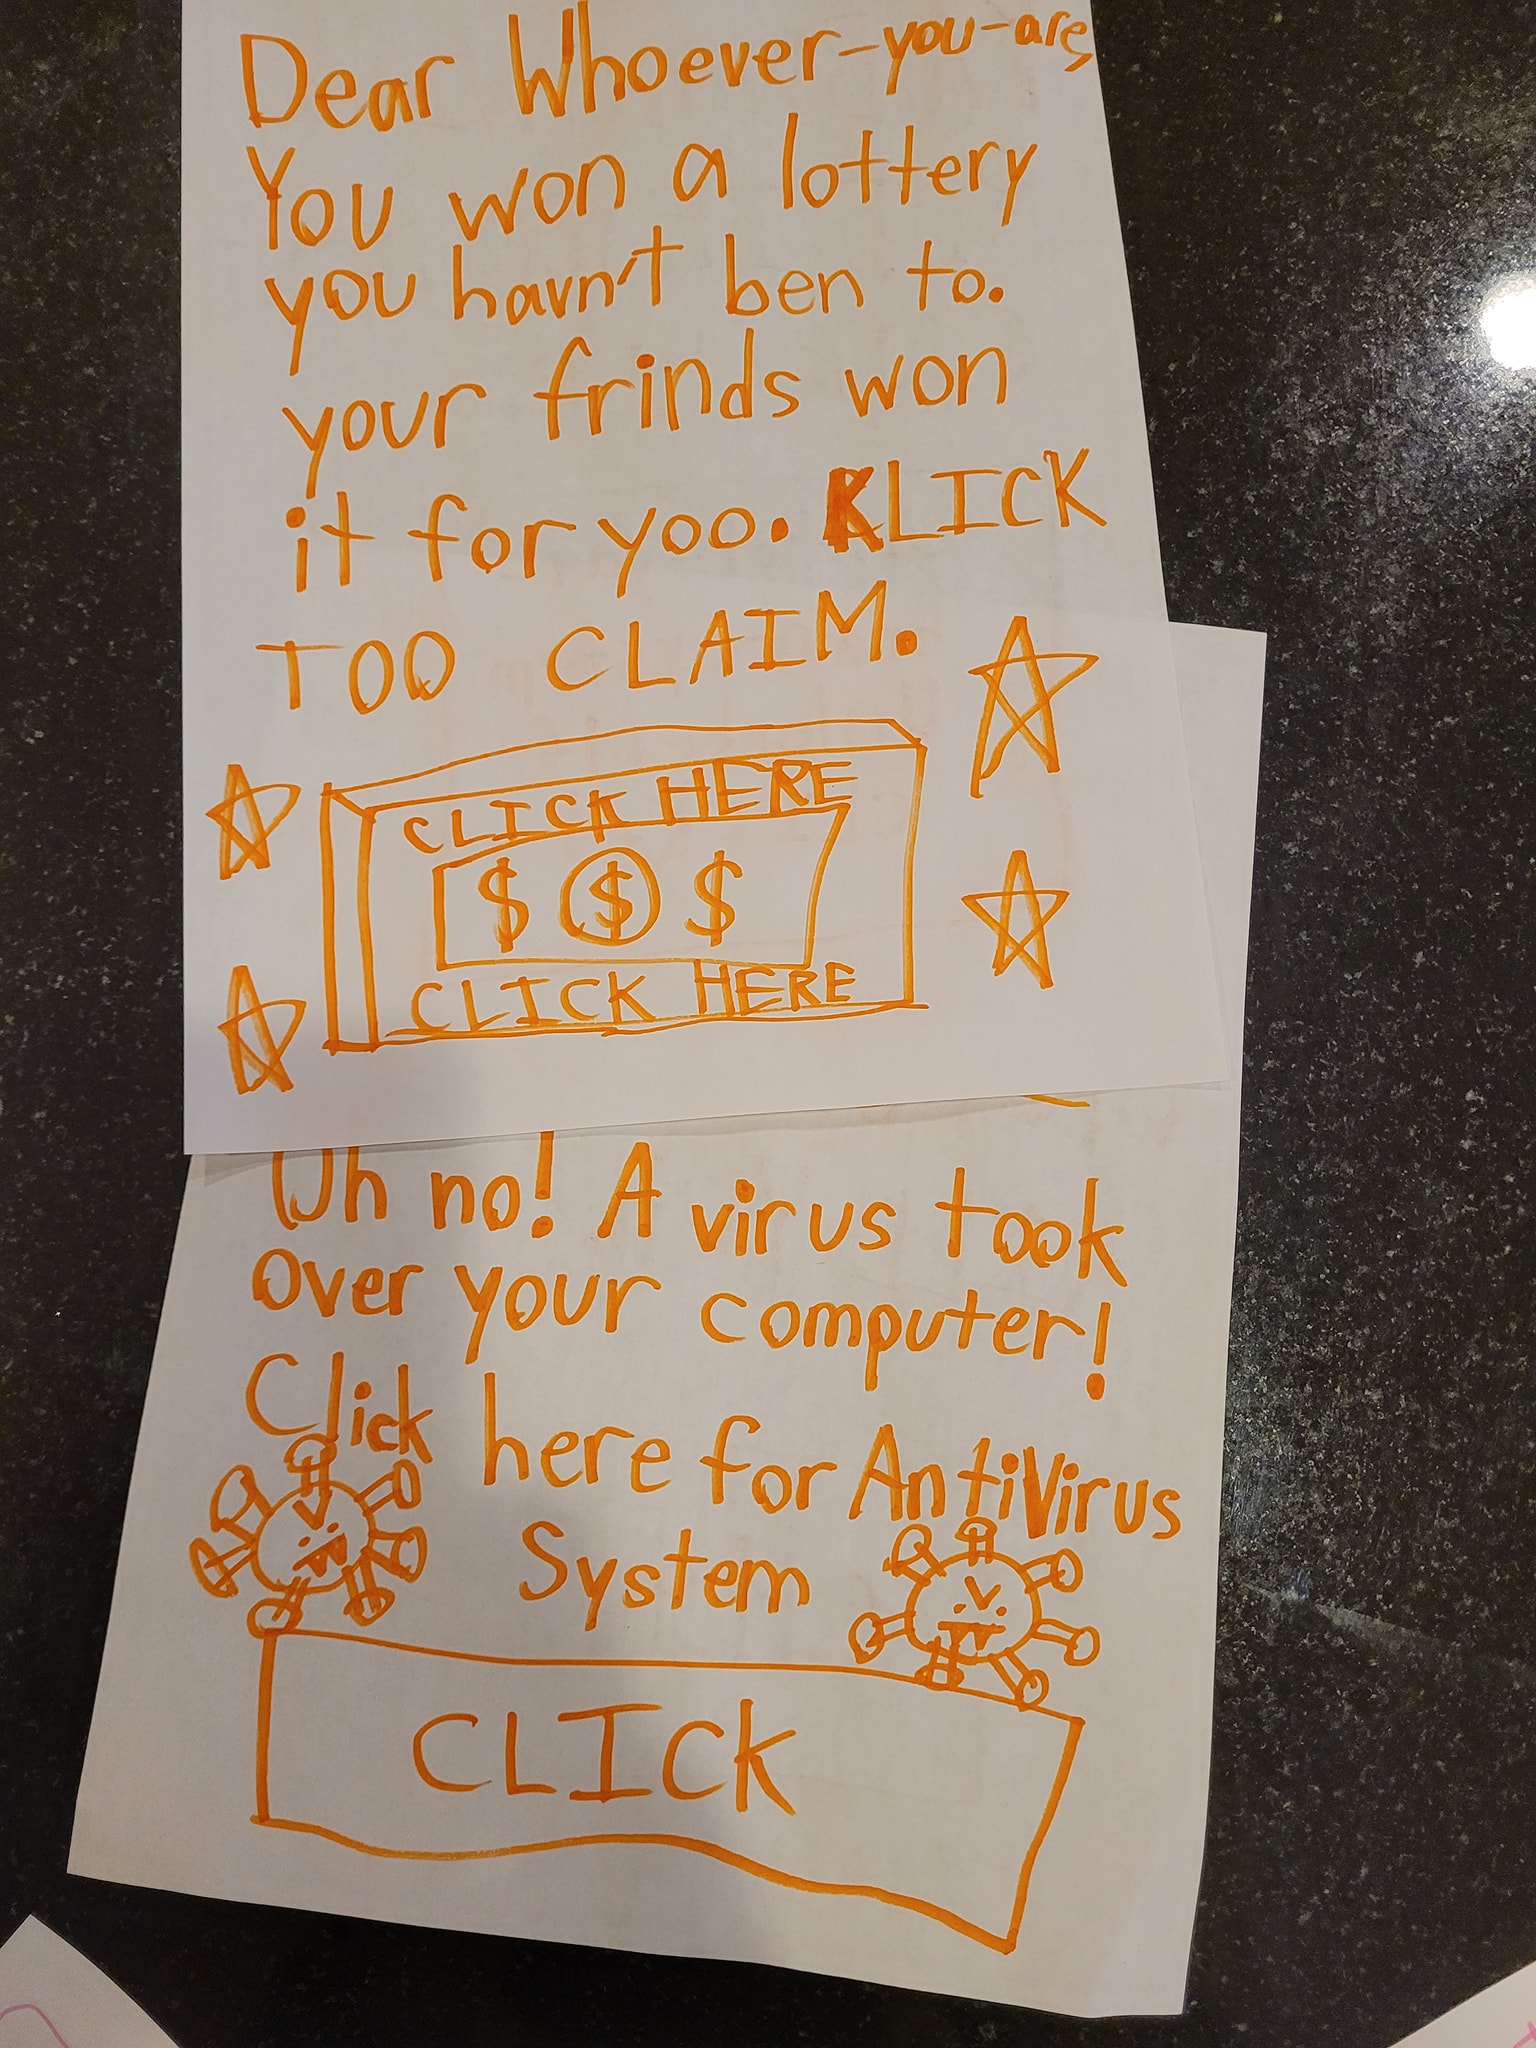 Dear Whoever-you-are,
You won a lottery
you havn't ben to.
your frinds won
it for yoo. KLICK
TOO CLAIM.
CLICK HERE
$ $ $
CLICK HERE
Uh no! A virus took
over your computer!
Click here for AntiVirus
System
CLICK